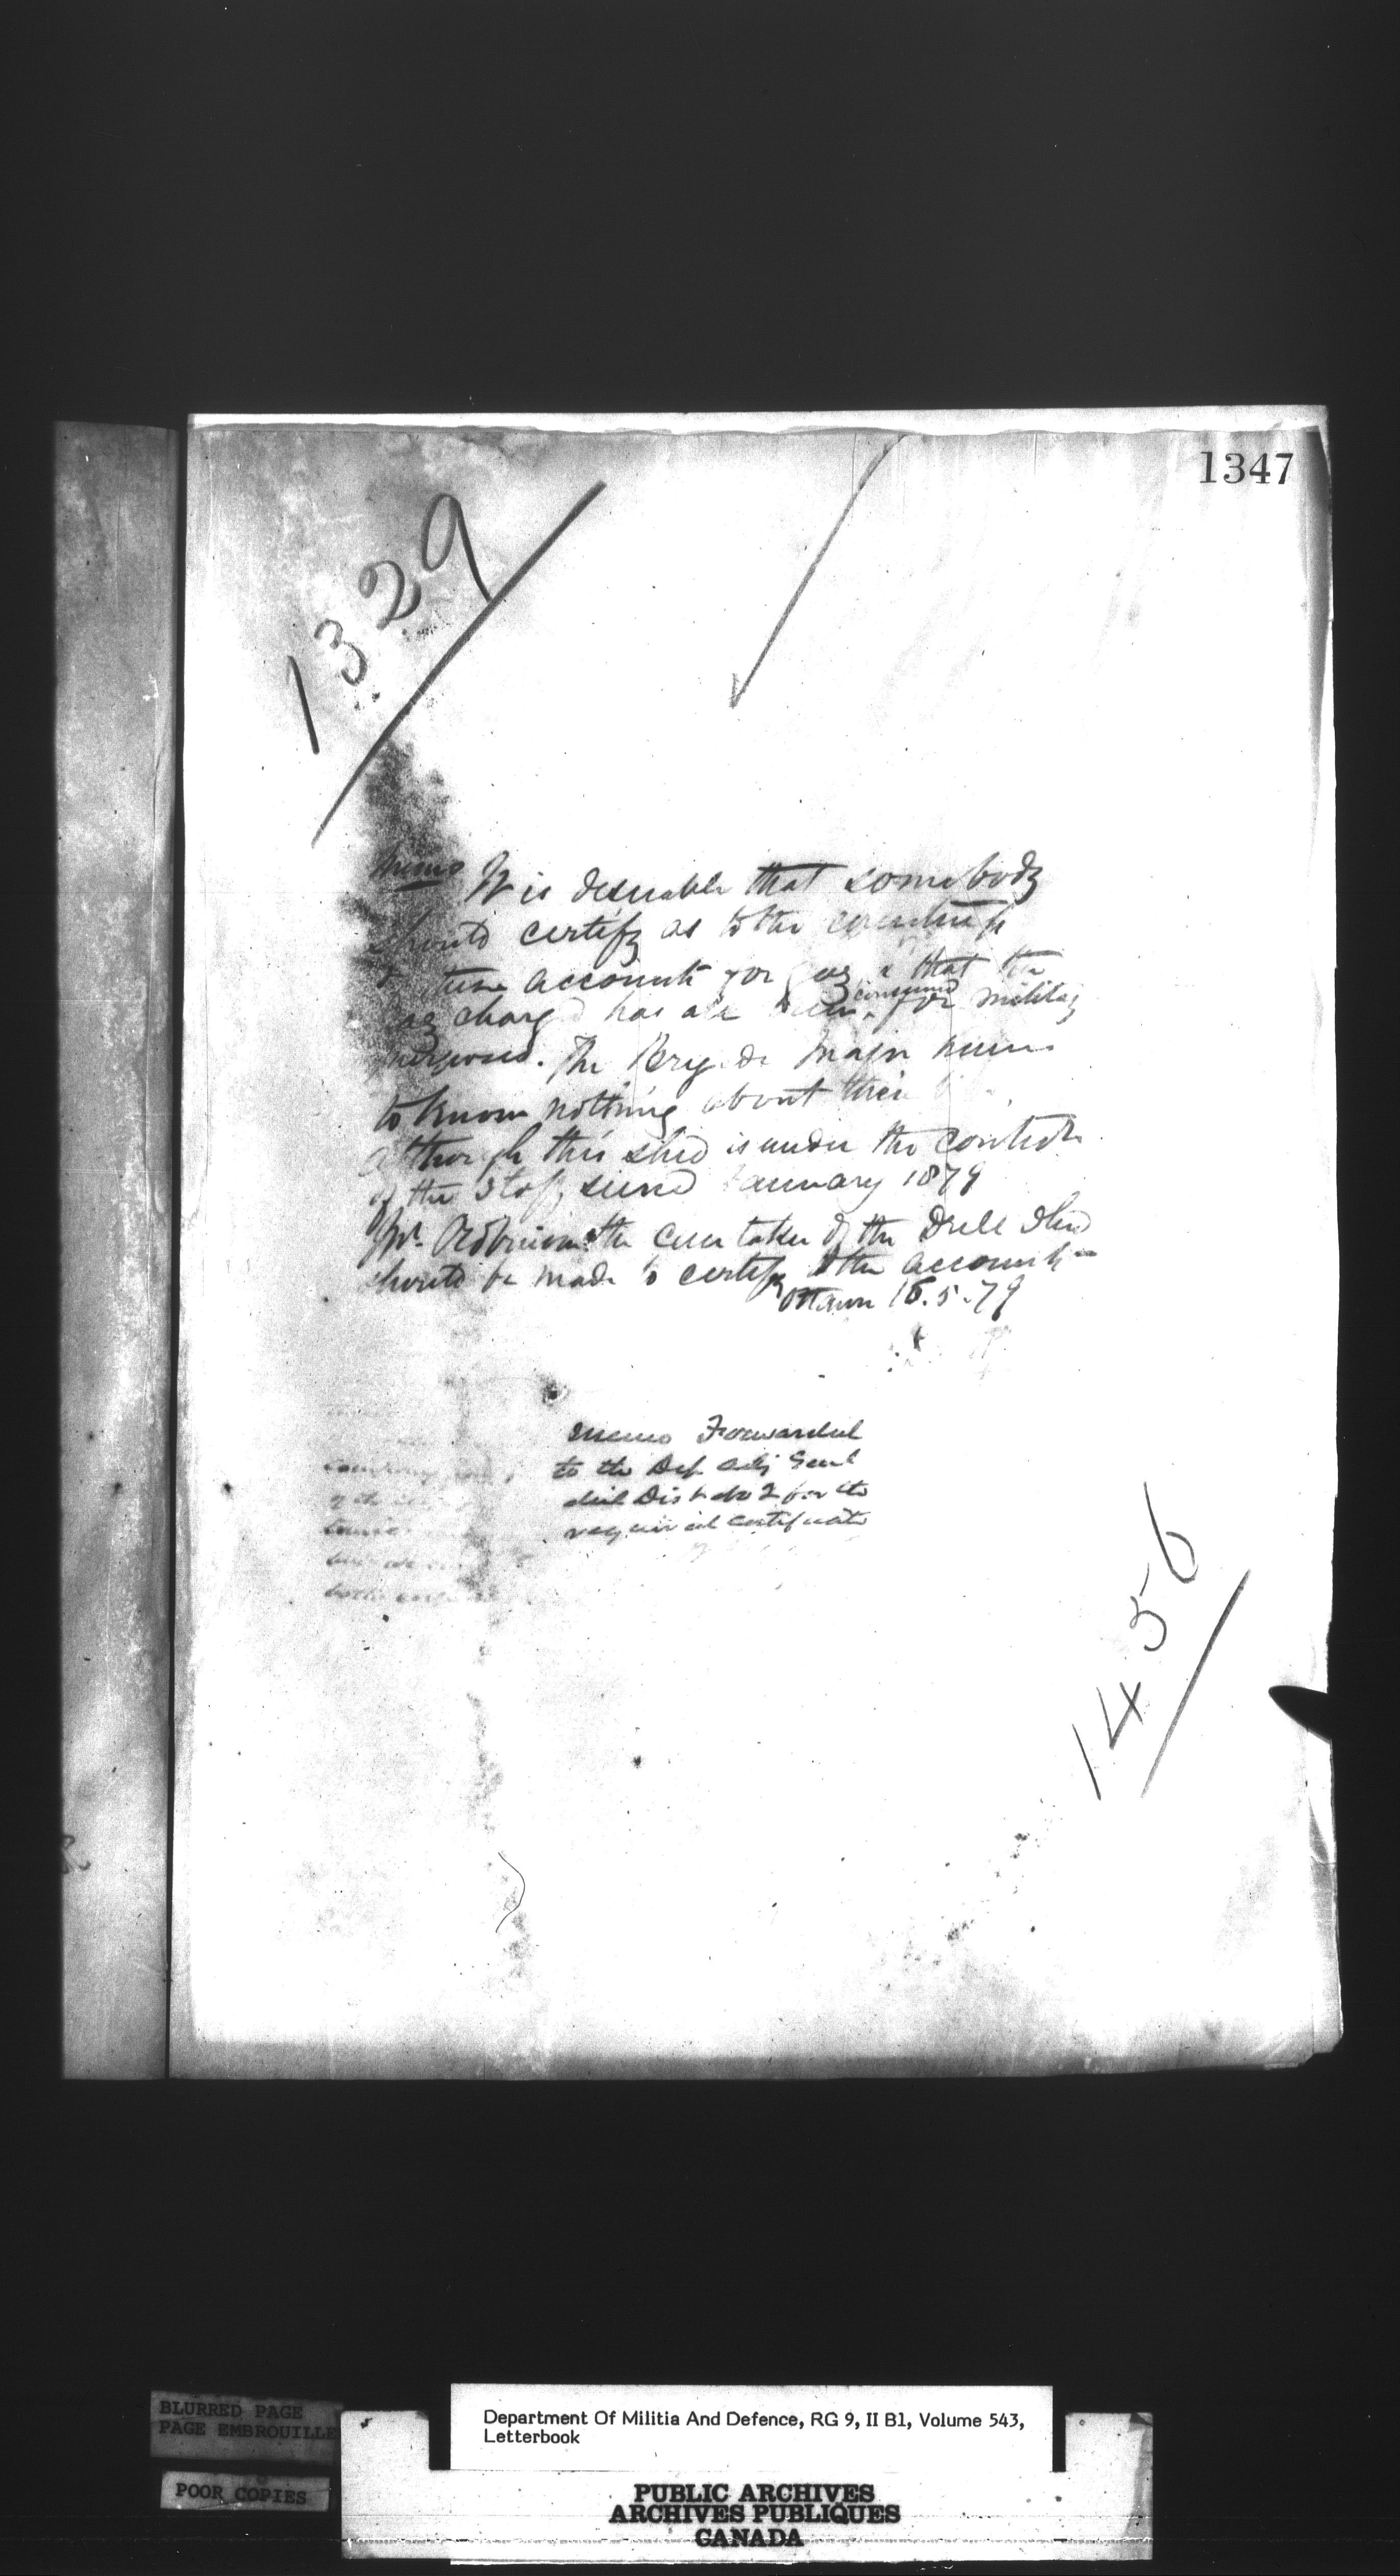 1347
1329
Memo It is desirable that somebody
should certify as to the correctness
of these accounts for gas & that the
gas charged has all been consumed for military
purposes. The Brigade Major seems
to know nothing about their
although this shed is under the control
of the Staff since January 1879
Mr. Robinson the care taker of the Drill Shed
should be made to certify to the accounts
Ottawa 15.5.79
Memo Forwarded
to the Dep Adj Genl
Mil Dist No 2 for the
required certificate
company
of the
1456
BLURRED PAGE
PAGE EMBROUILLE
POOR COPIES
Department Of Militia And Defence, RG 9, II B1, Volume 543,
Letterbook
PUBLIC ARCHIVES
ARCHIVES PUBLIQUES
CANADA